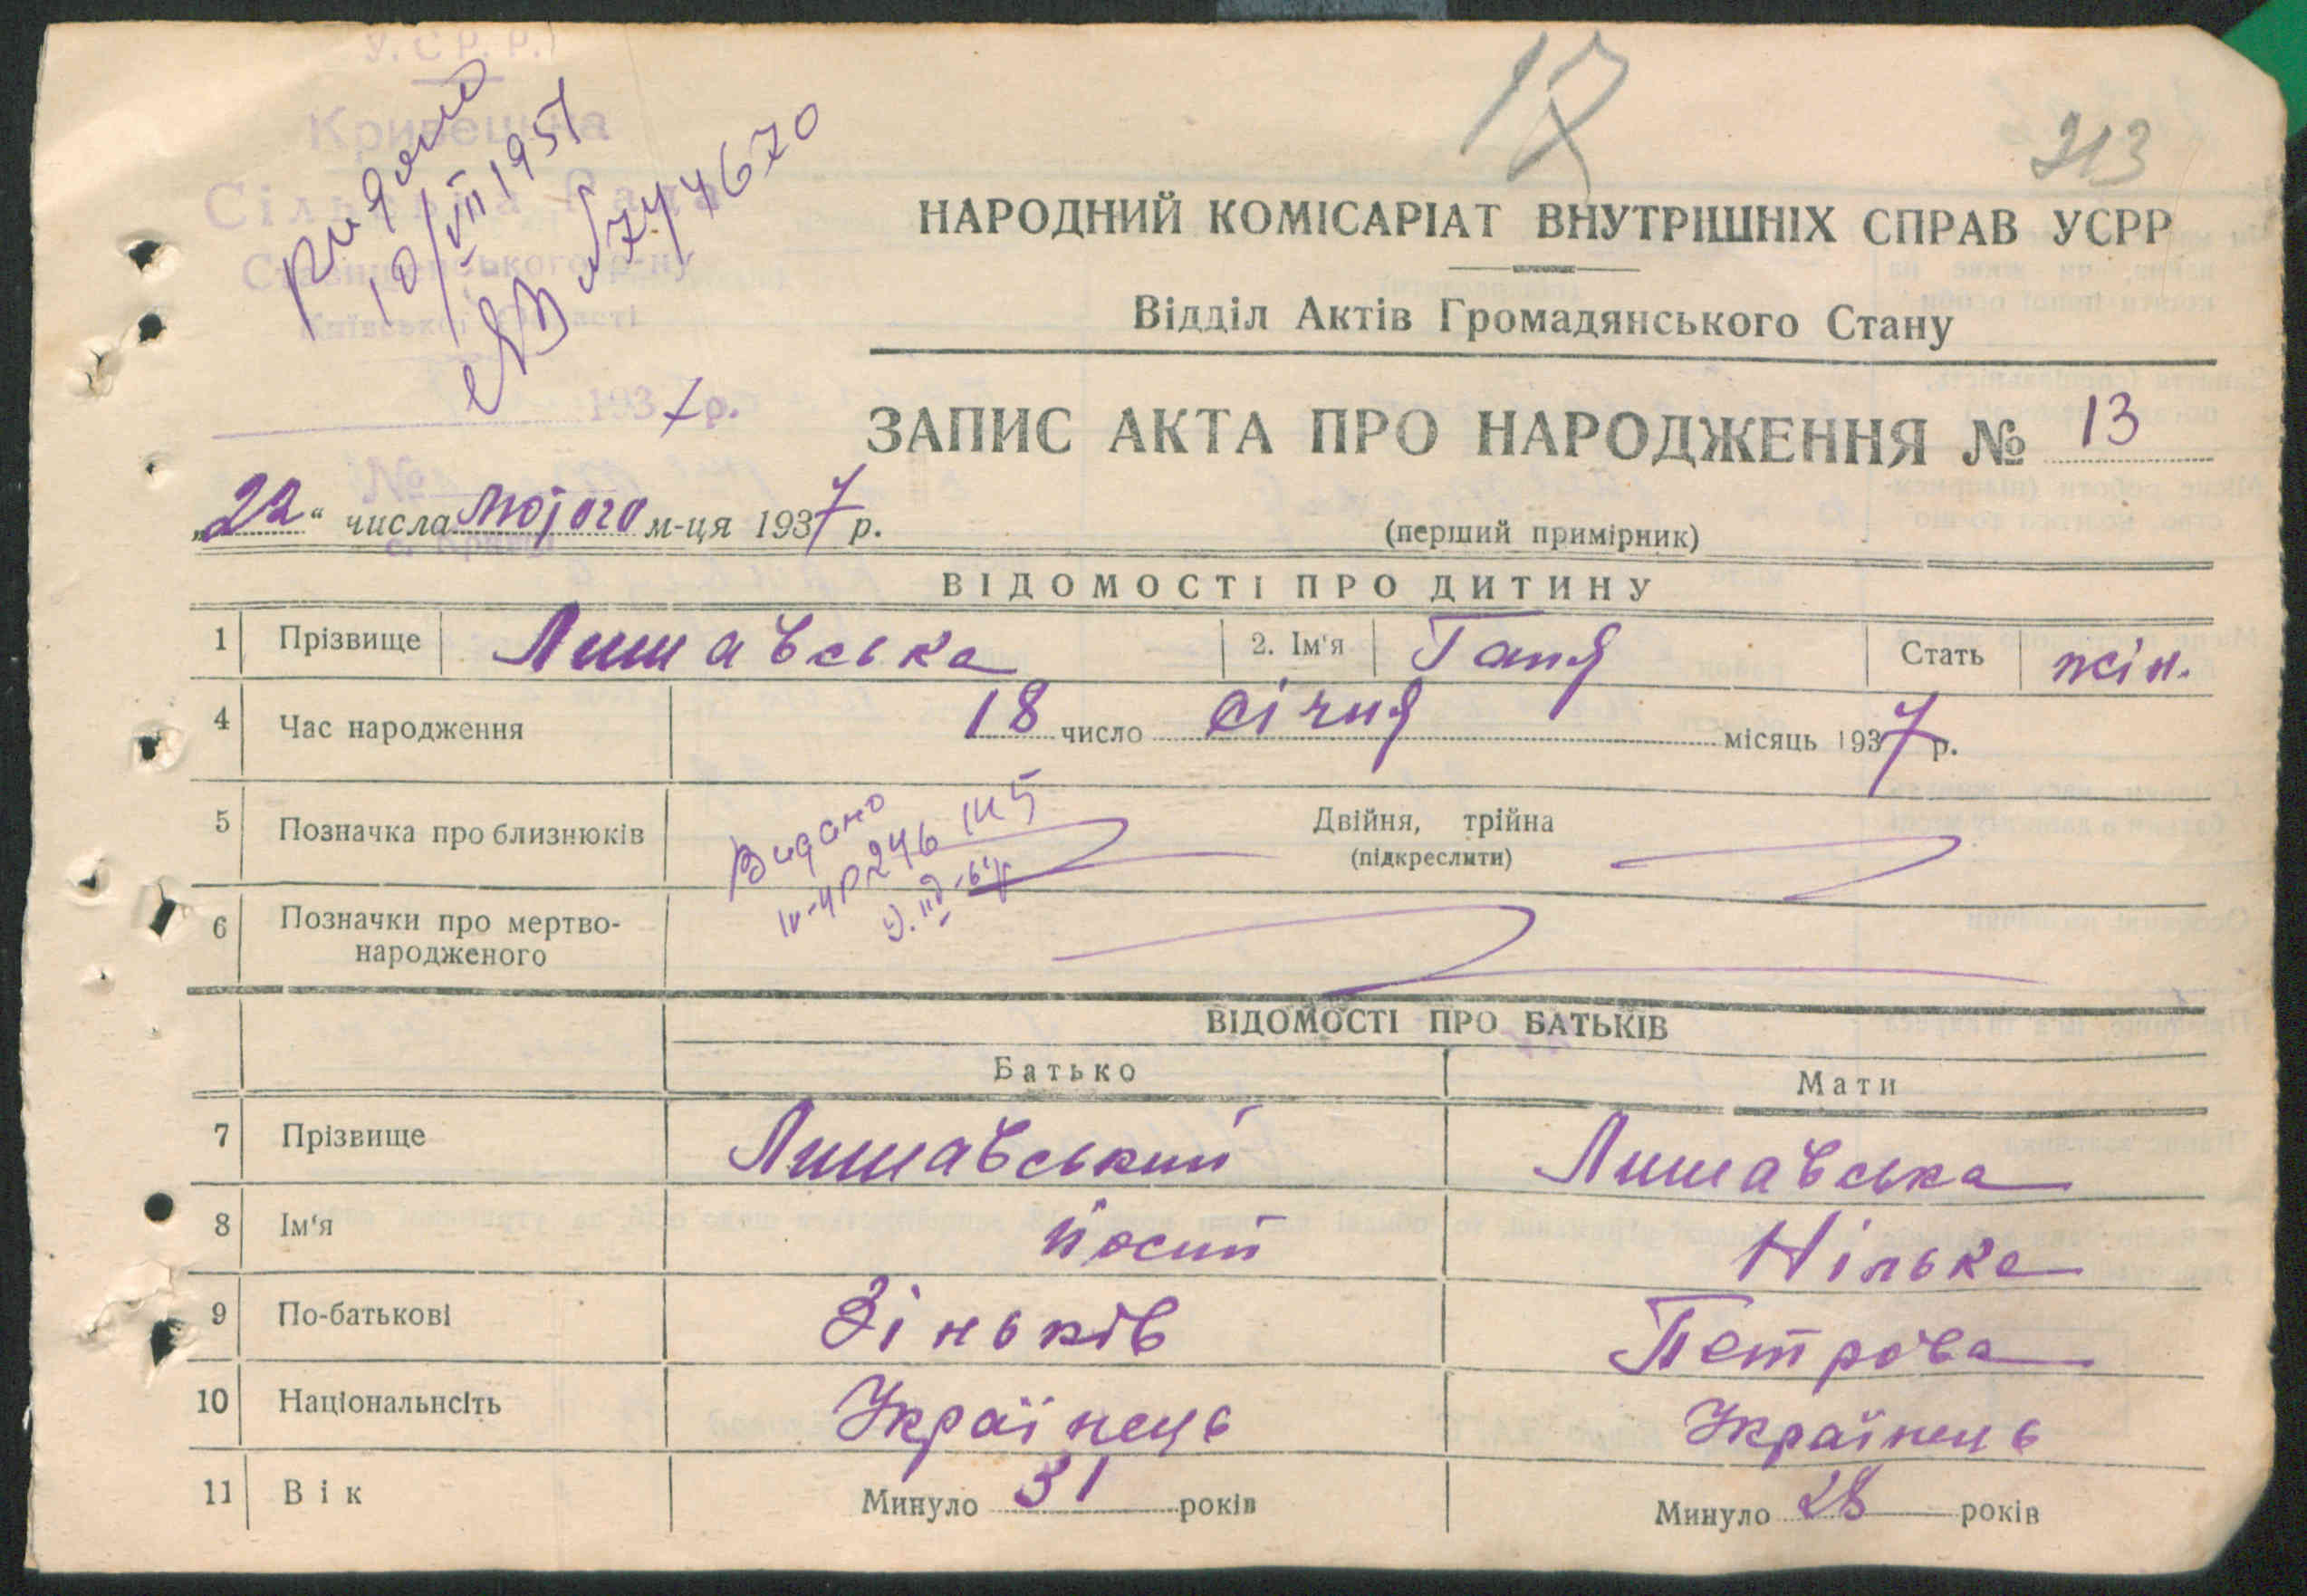 У.С.Р.Р.
Кривецька
Сільська Рада
Ставищенського р-ну
Київської Області
1937р.
с. Кривець
Видано
10/VII 1954
17
213
НАРОДНИЙ КОМІСАРІАТ ВНУТРІШНІХ СПРАВ УСРР
Відділ Актів Громадянського Стану
ЗАПИС АКТА ПРО НАРОДЖЕННЯ № 13
„22“ числа лютого м-ця 1937 р.
(перший примірник)
ВІДОМОСТІ ПРО ДИТИНУ
1 Прізвище Лишавська 2. Ім'я Ганя Стать жін.
4 Час народження 18 число січня місяць 1937 р.
5 Позначка про близнюків Двійня, трійна
(підкреслити)
Видано
6 Позначки про мертво-
народженого
ВІДОМОСТІ ПРО БАТЬКІВ
Батько Мати
7 Прізвище Лишавський Лишавська
8 Ім'я йосип Нілька
9 По-батькові Зіньків Петрова
10 Національнсіть Українець Українець
11 Вік Минуло 31 років Минуло 28 років